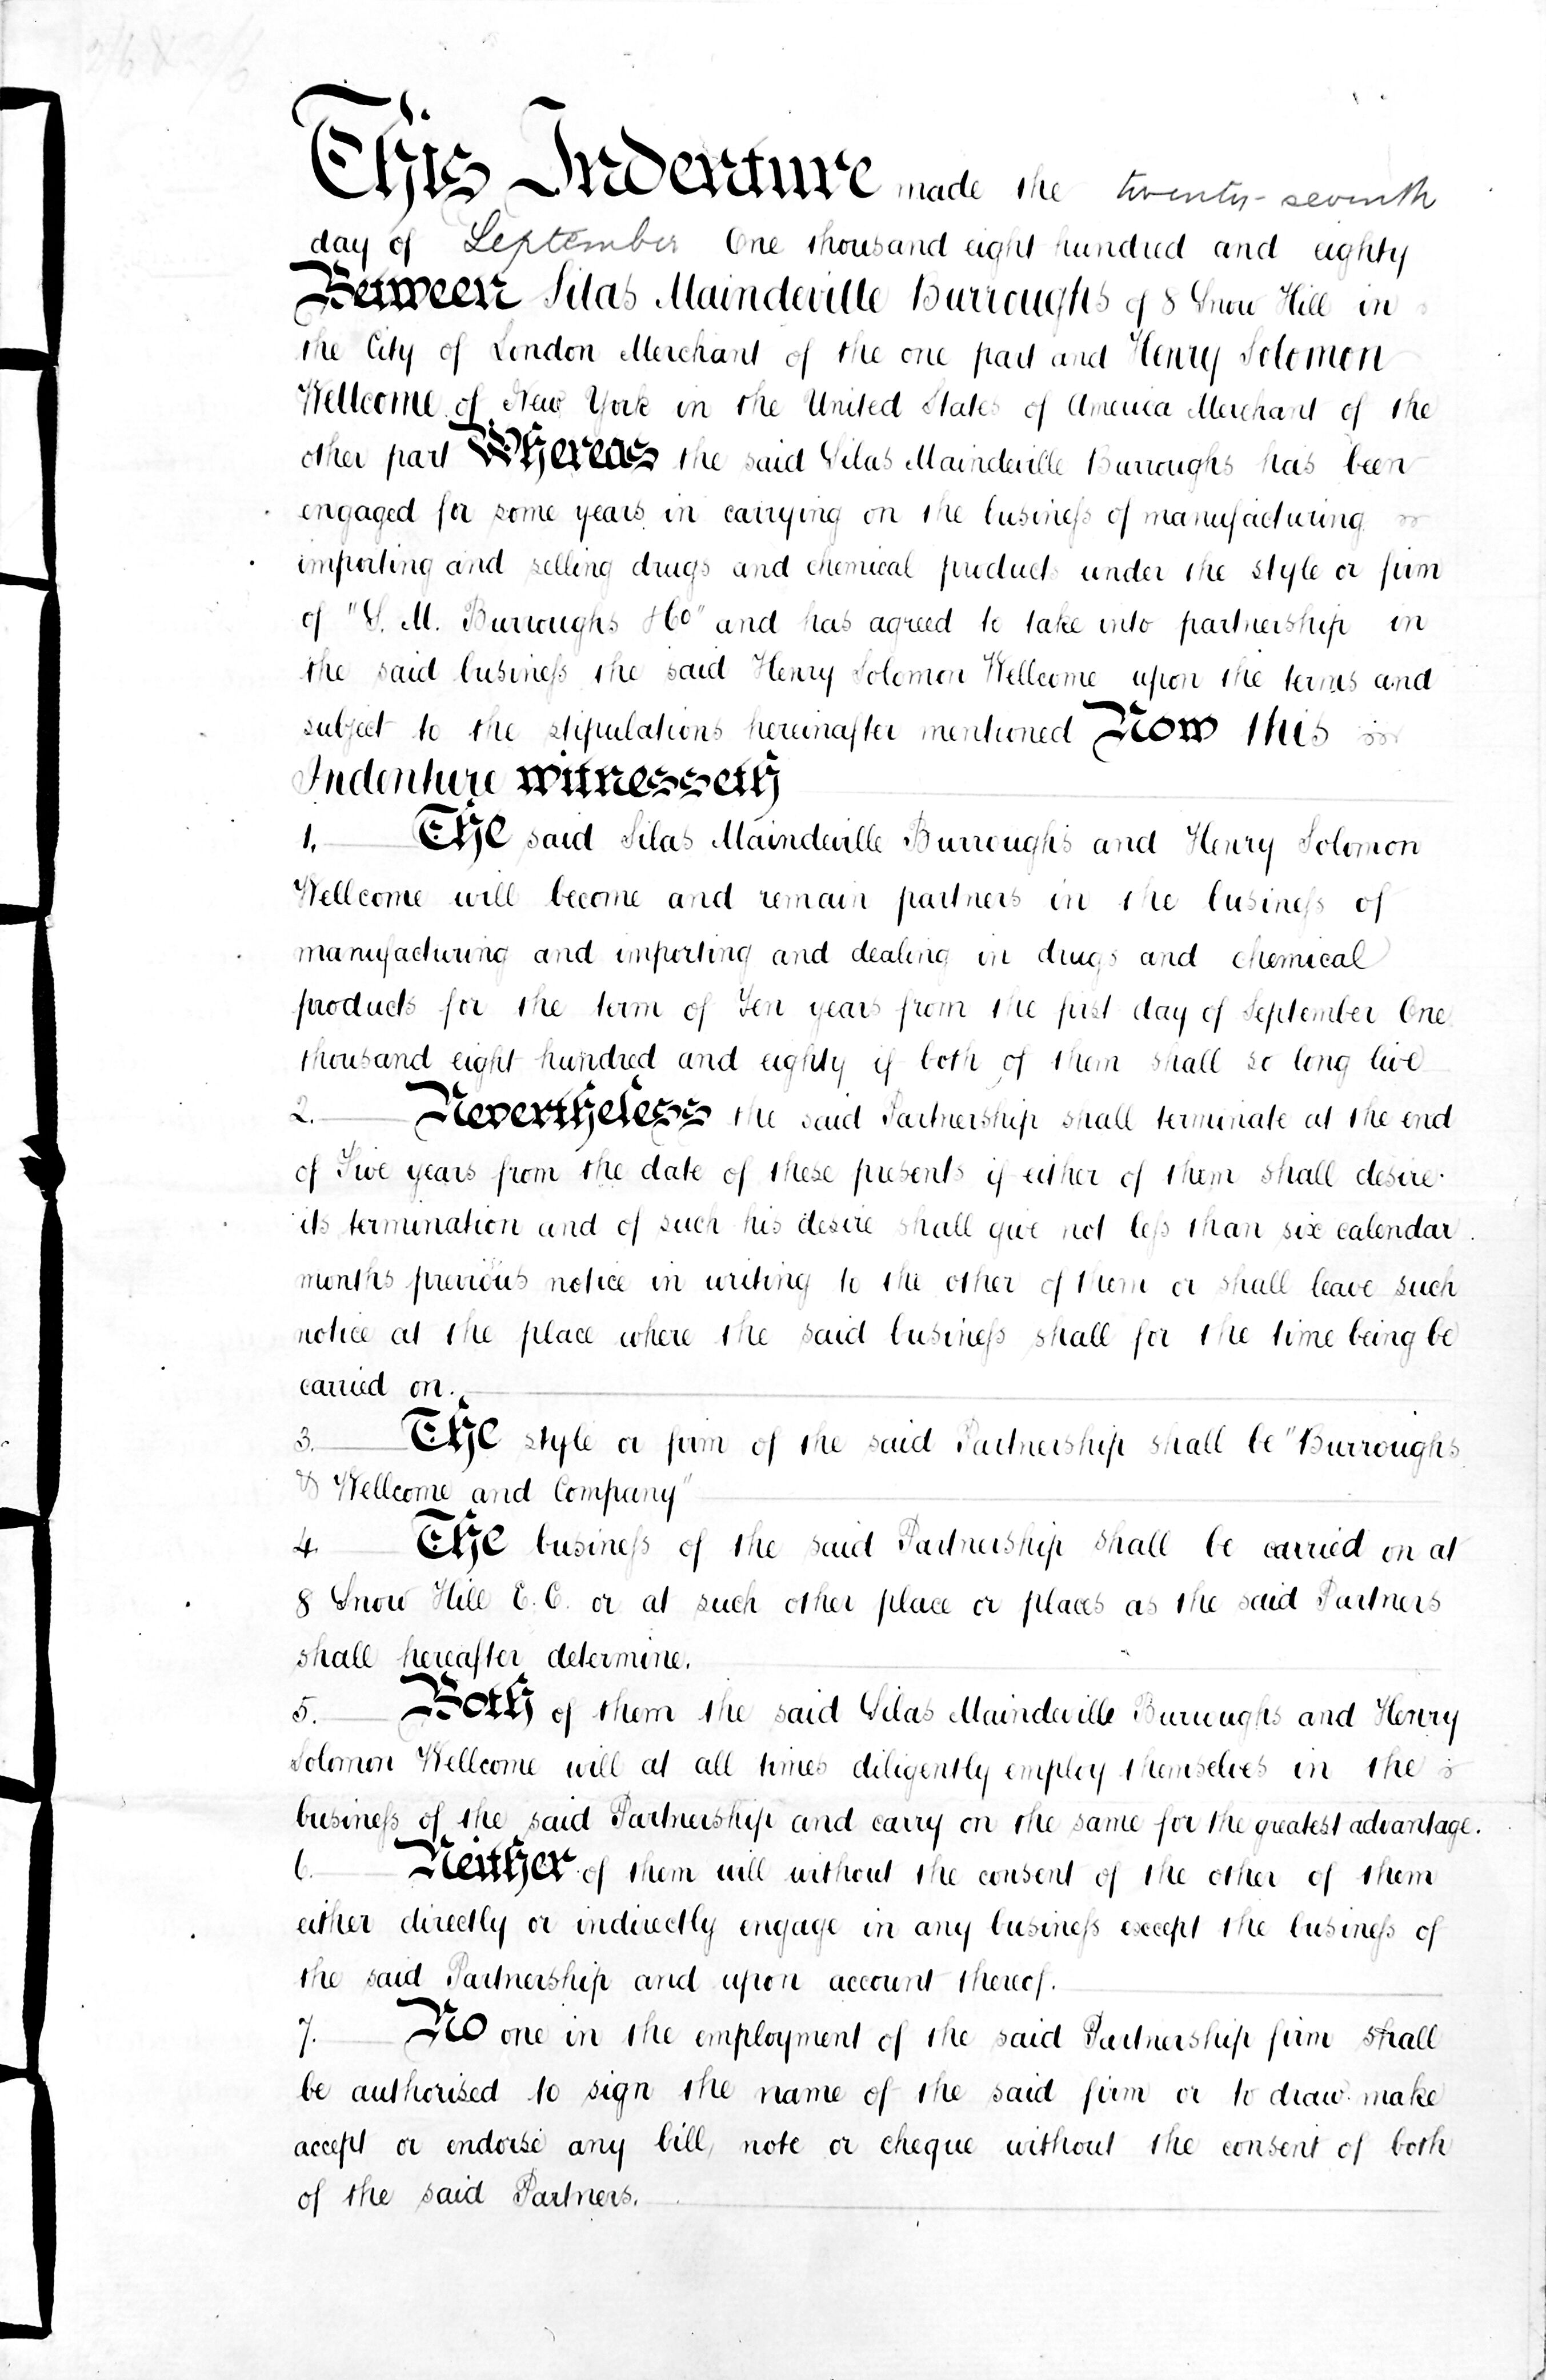 This Indenture made the twenty-seventh
day of September One thousand eight hundred and eighty
Between Silas Maindeville Burroughs of 8 Snow Hill in
the City of London Merchant of the one part and Henry Solomon
Wellcome of New York in the United States of America Merchant of the
other part Whereas the said Silas Maindeville Burroughs has been
engaged for some years in carrying on the business of manufacturing
importing and selling drugs and chemical products under the style or firm
of "S. M. Burroughs & Co" and has agreed to take into partnership in
the said business the said Henry Solomon Wellcome upon the terms and
subject to the stipulations hereinafter mentioned Now this
Indenture witnesseth
1. The said Silas Maindeville Burroughs and Henry Solomon
Wellcome will become and remain partners in the business of
manufacturing and importing and dealing in drugs and chemical
products for the term of Ten years from the first day of September One
thousand eight hundred and eighty if both of them shall so long live
2. Nevertheless the said Partnership shall terminate at the end
of Five years from the date of these presents if either of them shall desire
its termination and of such his desire shall give not less than six calendar
months previous notice in writing to the other of them or shall leave such
notice at the place where the said business shall for the time being be
carried on.
3. The style or firm of the said Partnership shall be "Burroughs
Wellcome and Company"
4. The business of the said Partnership shall be carried on at
8 Snow Hill E.C. or at such other place or places as the said Partners
shall hereafter determine.
5. Both of them the said Silas Maindeville Burroughs and Henry
Solomon Wellcome will at all times diligently employ themselves in the
business of the said Partnership and carry on the same for the greatest advantage.
6. Neither of them will without the consent of the other of them
either directly or indirectly engage in any business except the business of
the said Partnership and upon account thereof.
7. No one in the employment of the said Partnership firm shall
be authorised to sign the name of the said firm or to draw make
accept or endorse any bill, note or cheque without the consent of both
of the said Partners.